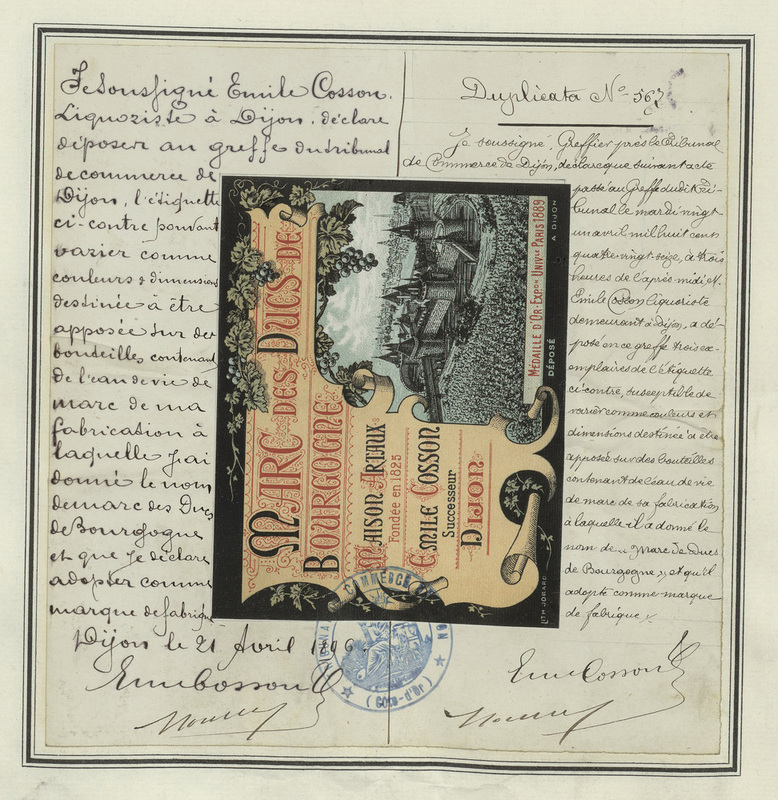 Je Soussigné Emile Cosson.
Liquoriste à Dijon. déclare
déposer au greffe du tribunal
de commerce de
Dijon, l'étiquette
ci-contre pouvant
varier comme
couleurs & dimensions
destinée à être
apposée sur des
bouteilles contenant
de l'eau de vie de
marc de ma
fabrication à
laquelle j'ai
donné le nom
de marc des Ducs
de Bourgogne
et que je déclare
adopter comme
marque de fabrique
Dijon le 21 Avril 1896.
Emile Cosson
MARC DES DUCS DE
BOURGOGNE
MAISON ARTAUX
Fondée en 1825
EMILE COSSON
Successeur
DIJON
MÉDAILLE D'OR. EXPON UNIVLE PARIS 1889
DÉPOSÉ
A DIJON
LITH JOBARD
COMMERCE
(CÔTE-D'OR)
Duplicata No 567
Je soussigné, Greffier près le Tribunal
de Commerce de Dijon, déclare que suivant acte
passé au Greffe dudit Tri-
bunal le mardi vingt
un avril mil huit cent
quatre vingt seize, à trois
heures de l'après-midi M.
Emile Cosson liquoriste
demeurant à Dijon, a dé-
posé en ce greffe trois ex-
emplaires de l'étiquette
ci-contre, susceptible de
varier comme couleurs et
dimensions destinée à être
apposée sur des bouteilles
contenant de l'eau de vie
de marc de sa fabrication
à laquelle il a donné le
nom de « Marc des Ducs
de Bourgogne », et qu'il
adopte comme marque
de fabrique.
Emile Cosson